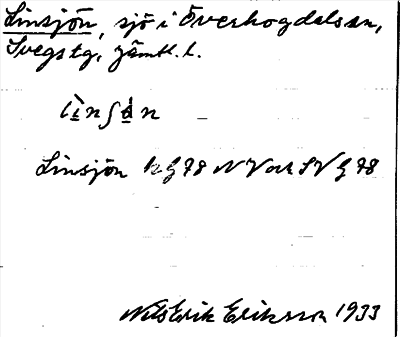 Linsjön, sjö i Överhogdals sn,
Svegs tg, Jämtl. l.
Linsjön kg 78 NV och SV g 78
Nils Erik Eriksson 1933